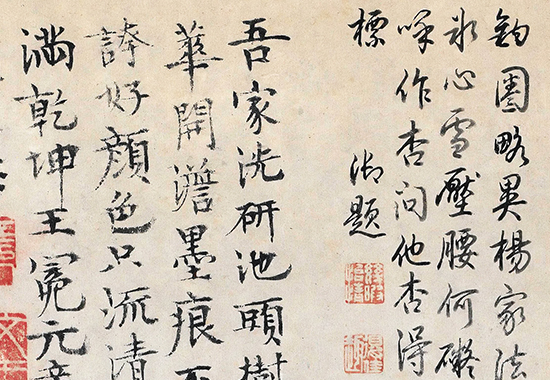 鈎圈略異楊家法
冰心雪壓腰何礙
呼作杏問他杏得
標
御題
吾家洗研池頭樹
華開澹墨痕不
誇好顏色只流清
滿乾坤王冕元章